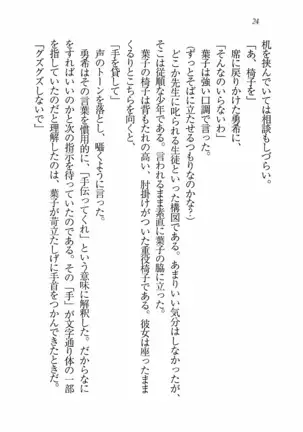 24
机を挟んでいては相談もしづらい。
「あ、椅子を」
席に戻りかけた勇希に、
「そんなのいらないわ」
葉子は強い口調で言った。
（ずっとそばに立たせるつもりなのかな？）
どこか先生に叱られる生徒といった構図である。あまりいい気分はしなかったが、
そこは従順な少年である。言われるまま素直に葉子の脇に立った。
葉子の椅子は背もたれの高い、肘掛けがついた重役椅子である。彼女は座ったまま
くるりとこちらを向くと、
「手を貸して」
声のトーンを落として言った。
勇希はその言葉を慣用的に、「手伝ってくれ」という意味に解釈した。だからなに
をすればいいのかと次の指示を待っていたのである。その「手」が文字通り体の一部
を指していたのだと理解したのは、葉子が苛立たしげに手首をつかんできたときだ。
「グズグズしないで」